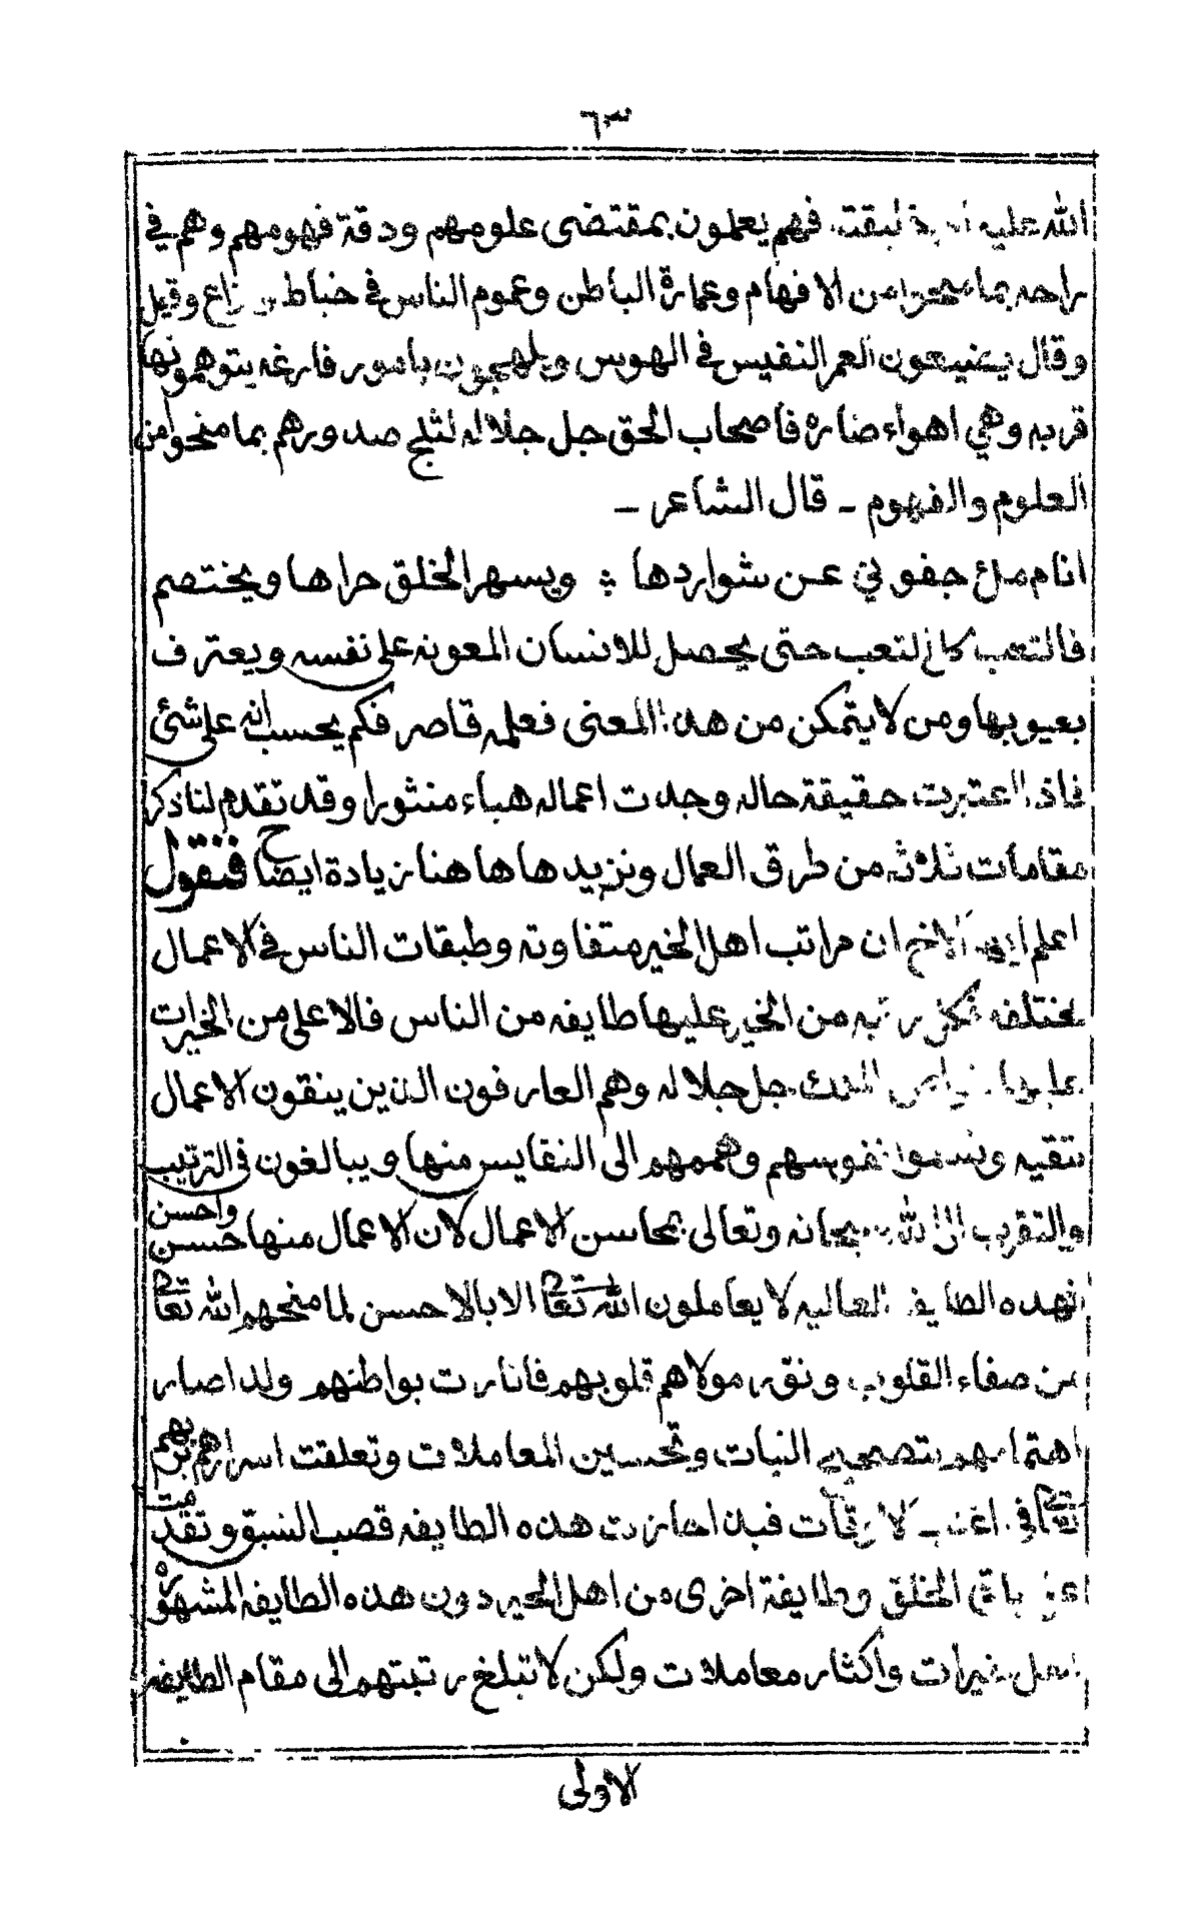 ٦٣
الله عليه فهم يعملون بمقتضى علومهم ودقة فهومهم وهم في
راحه بما من الافهام وعمارة الباطن وعموم الناس في خباط وقيل
وقال يضيعون العمر النفيس في الهوس ويلهجون بامور فارغه يتوهمونها
قربه وهي اهواء ضاره فاصحاب الحق جل جلاله لثلج صدورهم بما منحوا من
العلوم والفهوم - قال الشاعر -
انام ملئ جفوني عن شواردها ؞ ويسهر الخلق جراها ويختصم
فالتعب كل التعب حتى يحصل للانسان المعونه على نفسه ويعترف
بعيوبها ومن لا يتمكن من هذا المعنى فعلمه قاصر فكم يحسب انه على شئ
فاذا اعتبرت حقيقة حاله وجدت اعماله هباء منثورا وقد تقدم لنا ذكر
مقامات ثلاثه من طرق العمال ونزيدها هاهنا زيادة ايضاح فنقول
اعلم ايها الاخ ان مراتب اهل الخير متفاوته وطبقات الناس في الاعمال
مختلفه فكل رتبه من الخير عليها طايفه من الناس فالاعلى من الخيرات
عليها خواص الملك جل جلاله وهم العارفون الذين ينقون الاعمال
تنقيه وتسموا نفوسهم وهممهم الى النقايس منها ويبالغون في الترتيب
والتقرب الى الله سبحانه وتعالى بمحاسن الاعمال لان الاعمال منها حسن واحسن
فهذه الطايفه العاليه لا يعاملون الله تعالى الا بالاحسن لما منحهم الله تعالى
من صفاء القلوب ونور مولاهم قلوبهم فانارت بواطنهم ولذا صار
اهتمامهم بتصحيح النيات وتحسين المعاملات وتعلقت اسرارهم بربهم
تعالى في اغلب الاوقات فبذا حازت هذه الطايفه قصب السبق وتقدمت
على باقي الخلق وطايفة اخرى من اهل الخير دون هذه الطايفه المشهوره
خيرات واكثار معاملات ولكن لا تبلغ رتبتهم الى مقام الطايفه
الاولى